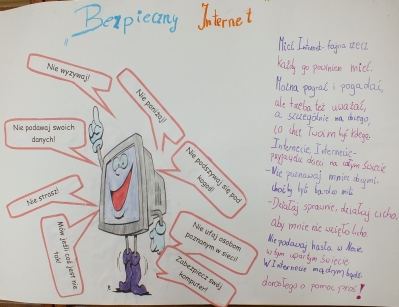 „Bezpieczny Internet
Nie wyzywaj!
Nie poniżaj!
Nie podawaj swoich
danych!
Nie podszywaj się pod
kogoś!
Nie strasz!
Mów jeśli coś jest nie
tak!
Nie ufaj osobom
poznanym w sieci!
Zabezpiecz swój
komputer!
Mieć Internet - fajna rzecz
Każdy go powinien mieć.
Można pograć i pogadać,
ale trzeba też uważać,
a szczególnie na
co chce Twoim być
Internecie, Internecie-
przyjacielu dzieci na całym świecie
- Nie poznawaj mnie z
choćby byli bardzo mili
- Działaj sprawnie, działaj cicho,
aby mnie nie wzięło licho.
Nie podawaj hasła w necie,
w tym upartym świecie.
W Internecie mądrym bądź
dorosłego o pomoc proś!